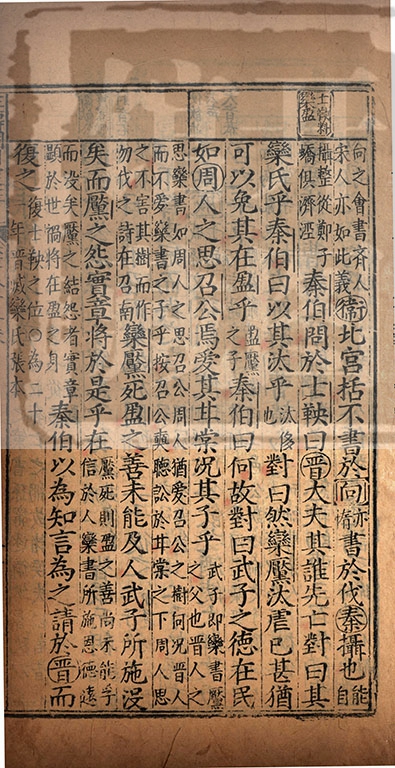 士鞅料
欒盈
向之會書齊人
宋人亦如此義
衞北宮括不書於向亦惰書於伐秦攝也能自
攝整從鄭子
蟜俱濟涇
秦伯問於士鞅曰晉大夫其誰先亡對曰其
欒氏乎秦伯曰以其汰乎汰侈也對曰然欒黶汰虐已甚猶
可以免其在盈乎盈黶之子秦伯曰何故對曰武子之德在民
如周人之思召公焉愛其甘棠況其子乎武子即欒書黶之父也晉人之
思欒書如周人之思召公周人猶愛召公之樹何況晉人
而不愛欒書之子乎按召公奭聽訟於甘棠之下周人思
之不害其樹而作
勿伐之詩在召南
欒黶死盈之善未能及人武子所施没
矣而黶之怨實章將於是乎在黶死則盈之善尚未能孚信於人欒書所施恩德遠
而没矣黶之結怨者實章
顯於世禍將在盈之身
秦伯以為知言為之請於晉而
復之復士鞅之位〇為二十一年晉滅欒氏張本